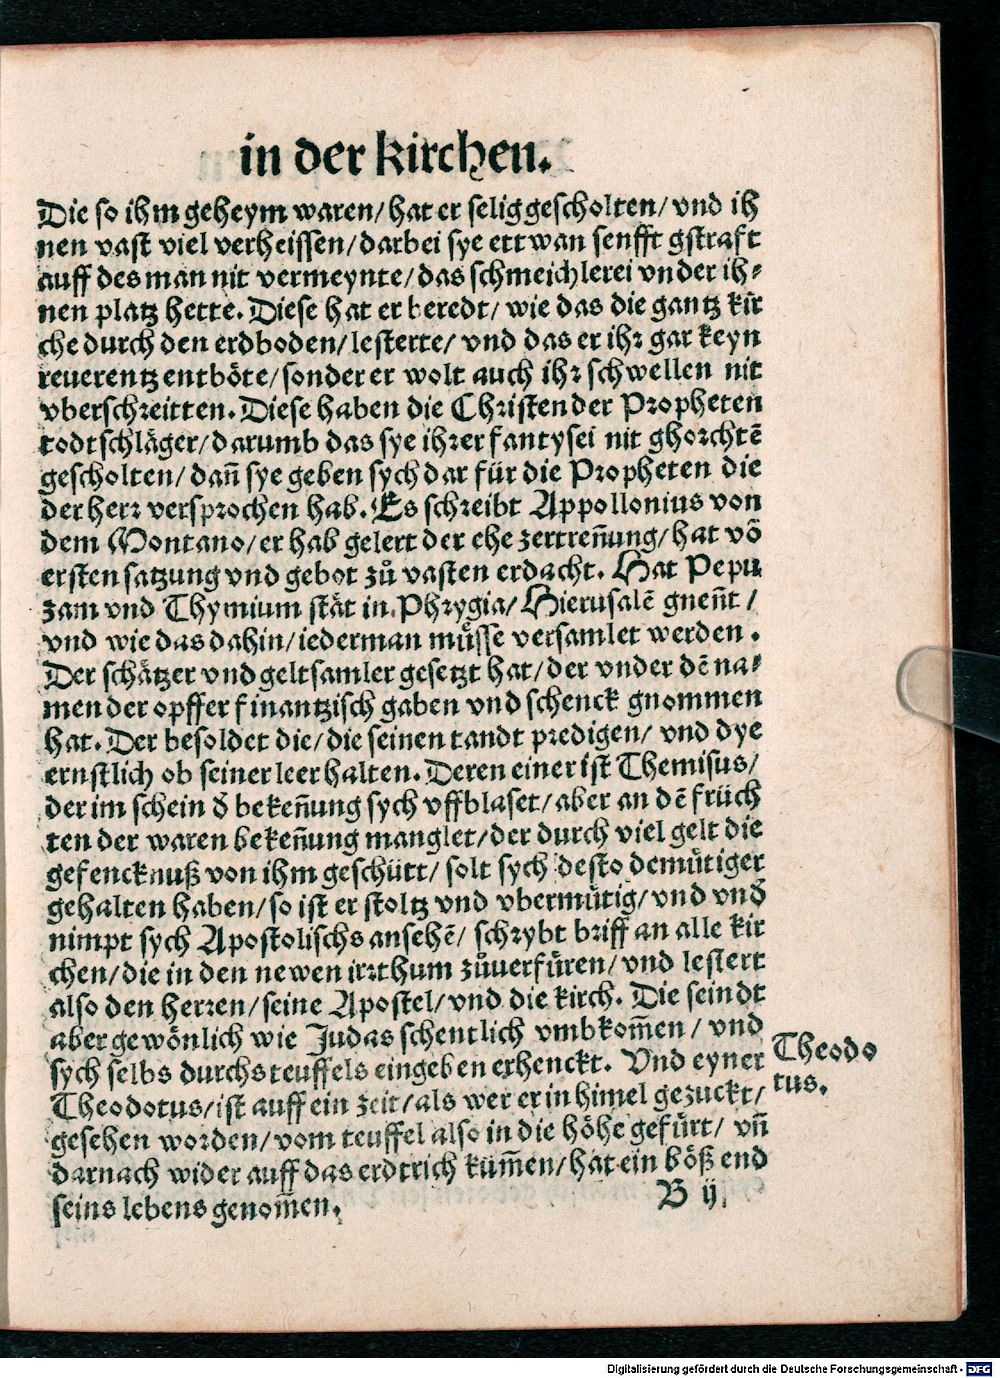 in der kirchen.
Die so ihm geheym waren/ hat er selig gescholten/ vnd ih
nen vast viel verheissen/ darbei sye ettwan senfft gstraft
auff des man nit vermeynte/ das schmeichlerei vnder ih-
nen platz hette. Diese hat er beredt/ wie das die gantz kir
che durch den erdboden/ lesterte/ vnd das er ihr gar keyn
reuerentz entböte/ sonder er wolt auch ihr schwellen nit
vberschreitten. Diese haben die Christen der Propheten
todtschläger/ darumb das sye ihrer fantysei nit ghorchtē
gescholten/ dañ sye geben sych dar für die Propheten die
der herr versprochen hab. Es schreibt Appollonius von
dem Montano/ er hab gelert der ehe zertreñung/ hat võ
ersten satzung vnd gebot zů vasten erdacht. Hat Pepu
zam vnd Thymium stät in Phrygia/ Hierusalē gneñt /
vnd wie das dahin/ iederman müsse versamlet werden .
Der schätzer vnd geltsamler gesetzt hat/ der vnder dē na-
men der opffer finantzisch gaben vnd schenck gnommen
hat. Der besoldet die/ die seinen tandt predigen/ vnd dye
ernstlich ob seiner leer halten. Deren einer ist Themisus/
der im schein đ bekeñung sych vffblaset/ aber an dē früch
ten der waren bekeñung manglet/ der durch viel gelt die
gefencknuß von ihm geschütt/ solt sych desto demütiger
gehalten haben/ so ist er stoltz vnd vbermütig/ vnd vnđ
nimpt sych Apostolischs ansehē/ schrybt briff an alle kir
chen/ die in den newen irrthum zůuerfüren/ vnd lestert
also den herren/ seine Apostel/ vnd die kirch. Die seindt
aber gewönlich wie Judas schentlich vmbkom̄en/ vnd
sych selbs durchs teuffels eingeben erhenckt. Vnd eyner
Theodotus/ ist auff ein zeit/ als wer er in himel gezuckt/
gesehen worden/ vom teuffel also in die höhe gefürt/ vñ
darnach wider auff das erdtrich küm̄en/ hat ein böß end
seins lebens genom̄en.
Theodo
tus.
B ij
Digitalisierung gefördert durch die Deutsche Forschungsgemeinschaft - DFG